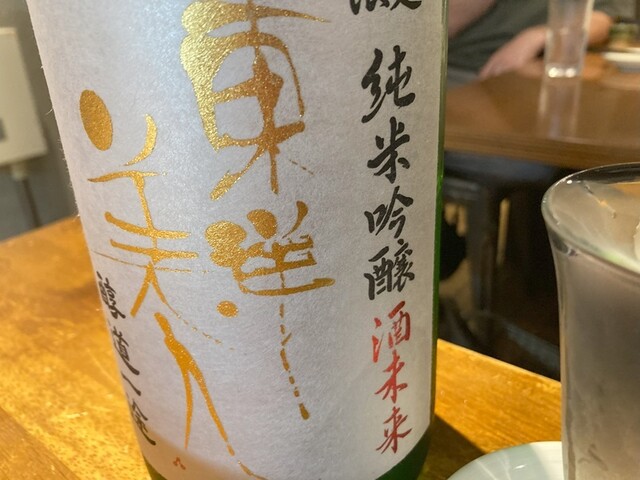 純米吟醸 酒未来
東洋
美人
醇道一途